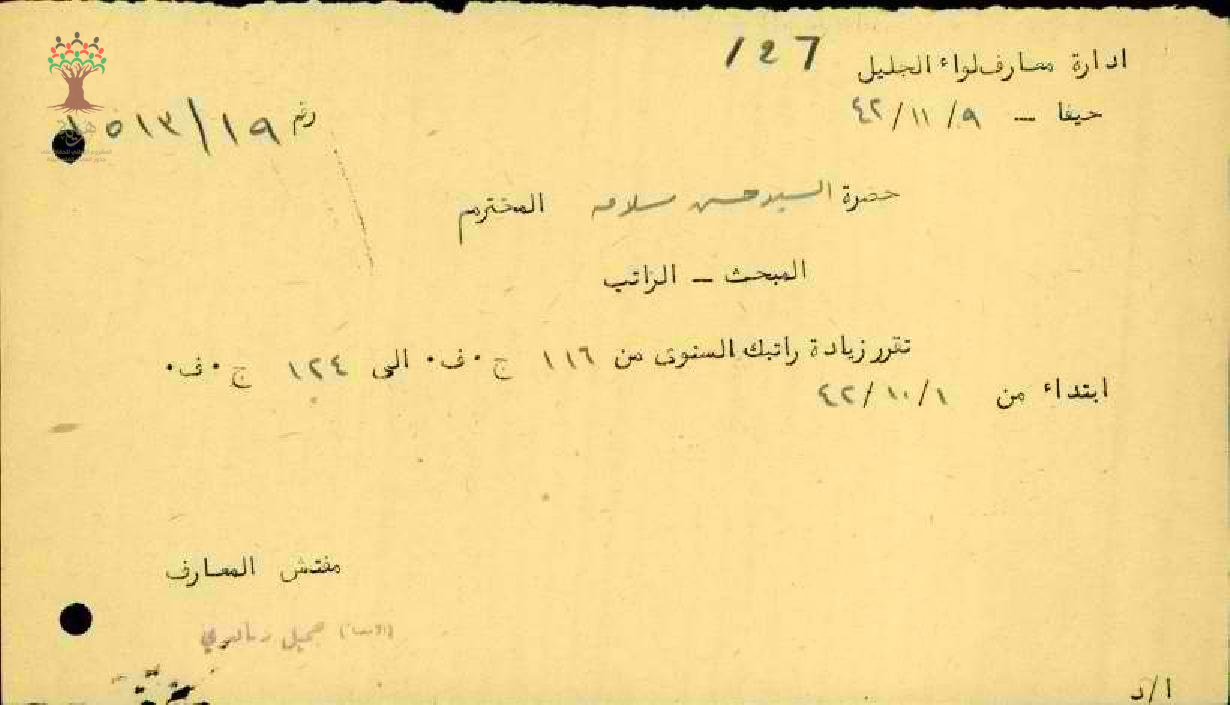 ادارة معارف لواء الجليل 127
حيفا — ٩/١١/٤٢
رقم ١٩/
حضرة السيد حسن سلامه المحترم
المبحث — الراتب
تقرر زيادة راتبك السنوى من ١١٦ ج٠ف٠ الى ١٢٤ ج٠ف٠
ابتداء من ١/١٠/٤٢
مفتش المعارف
جميل
ا/د